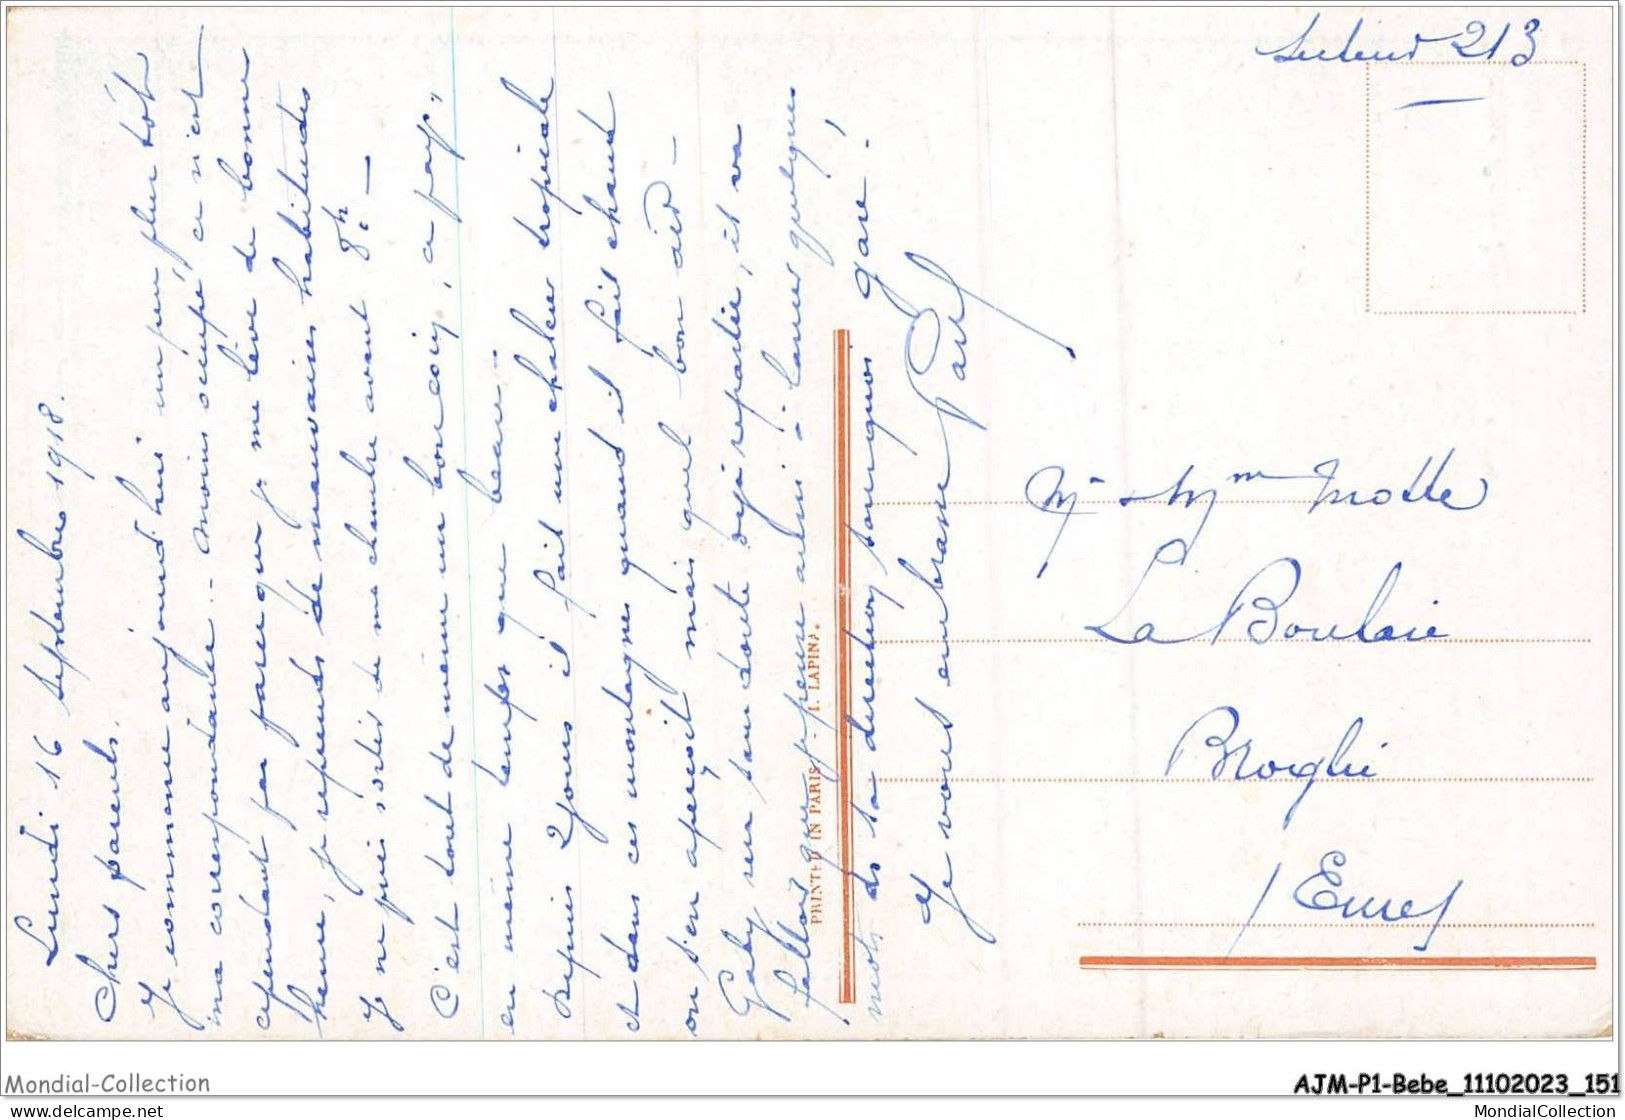 Secteur 213
Lundi 16 septembre 1918.
Chers parents.
Je commence aujourd'hui un peu plus tôt
ma correspondance - moins occupé, ce n'est
cependant pas parce que je me lève de bonne
heure, je reprends de mauvaises habitudes
Je ne puis sortir de ma chambre avant 8h -
C'est tout de même un bon coin, ce pays,
en même temps que beau -
depuis 2 jours il fait une chaleur tropicale
et dans ces montagnes quand il fait chaud
on s'en aperçoit mais quel bon air -
Gaby sera sans doute déjà repartie, il va
falloir que je pense aussi à lancer quelques
mots ds sa direction, sans quoi gare !
Je vous embrasse Paul
PRINTED IN PARIS - I. LAPINA.
Mr & Mme Motte
La Boulaie
Broglie
(Eure)
Mondial-Collection
AJM-P1-Bebe_11102023_151
www.delcampe.net
MondialCollection